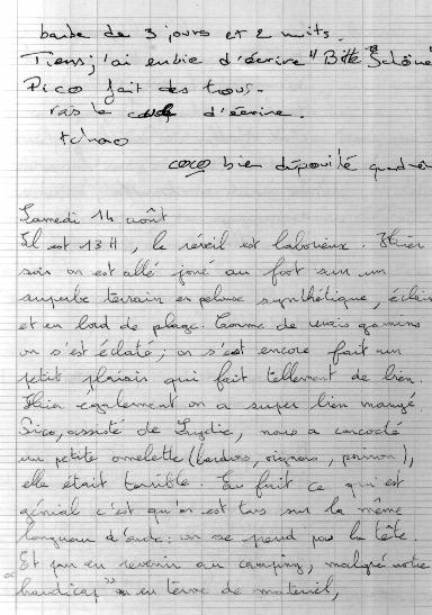 barbe de 3 jours et 2 nuits.
Tiens, j'ai envie d'écrire "Bitte Schöne"
Pico fait des trous.
ras le d'écrire.
tchao
coco bien dépouillé quand
Samedi 14 août
Il est 13H, le réveil est laborieux. Hier
soir on est allé joué au foot sur un
superbe terrain en pelouse synthétique, éclai
et en bord de plage. Comme de vrais gamins
on s'est éclaté; on s'est encore fait un
petit plaisir qui fait tellement de bien.
Hier également on a super bien mangé.
Pico, assisté de Lydie, nous a concocté
un petite omelette (lardons, oignons, poivron),
elle était terrible. En fait ce qui est
génial c'est qu'on est tous sur la même
longueur d'onde: on se prend pas la tête.
Et pour en revenir au camping, malgré notre
"handicap" en terme de matériel,